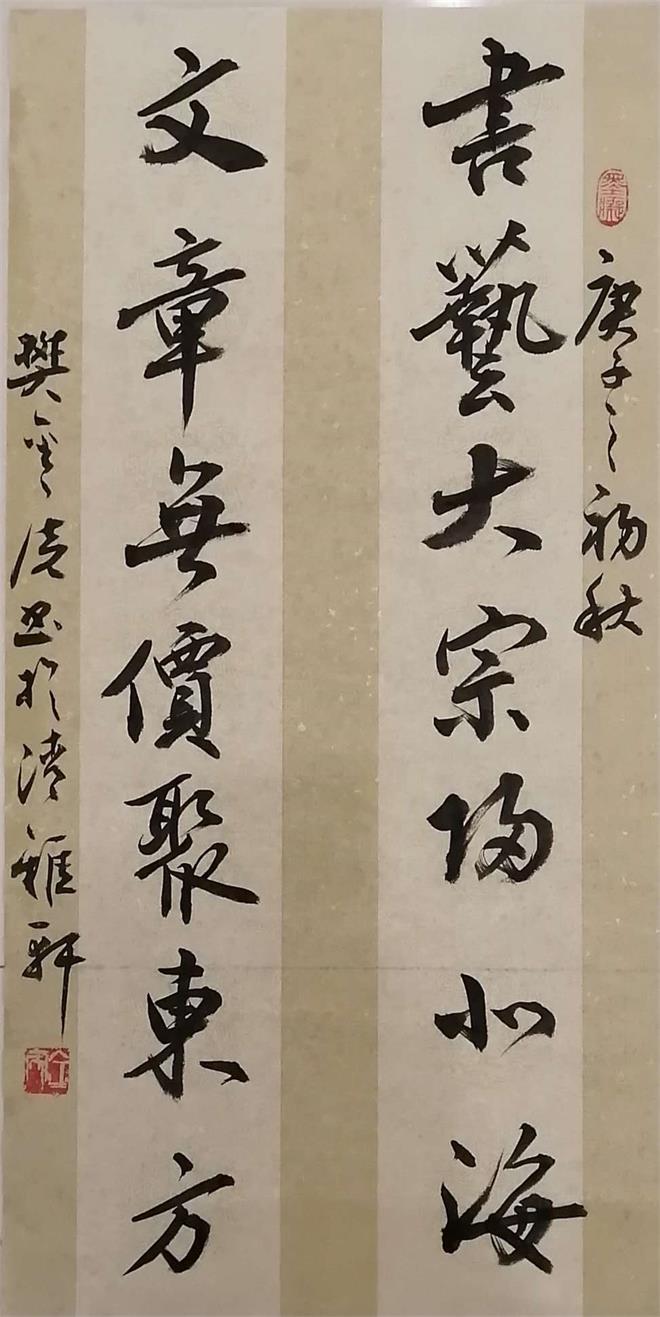 庚子之初秋
書藝大宗歸北海
文章無價聚東方
樊金书於清雅軒